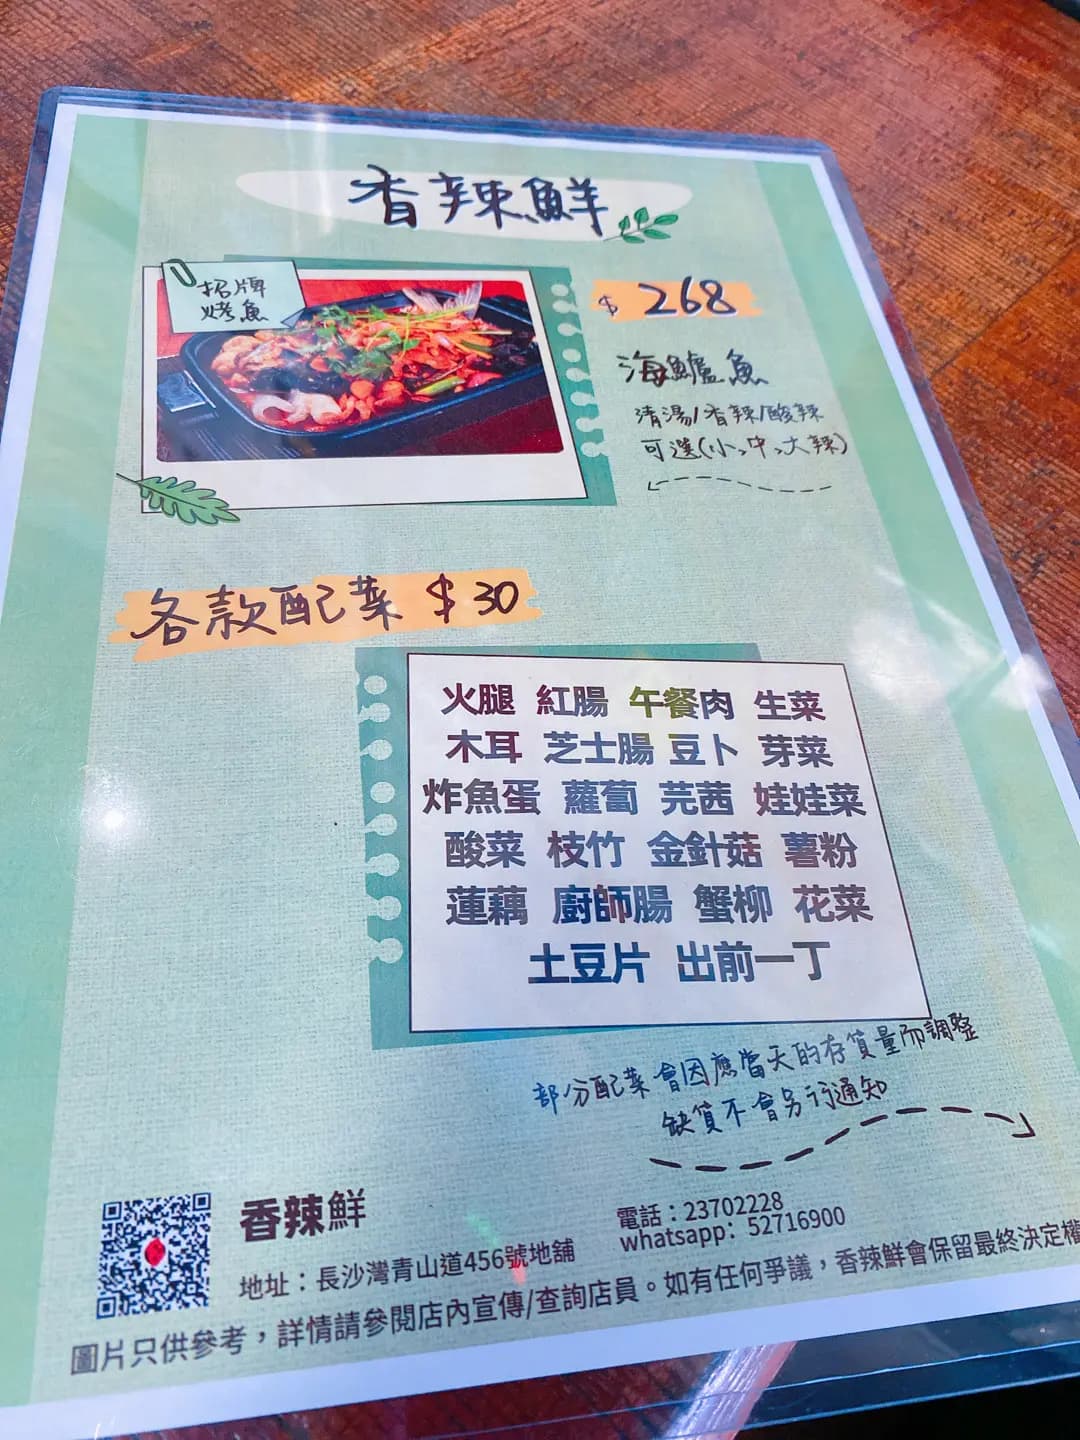 香辣鮮
招牌
烤魚
$ 268
海鱸魚
清湯/香辣/酸辣
可選(小、中、大辣)
各款配菜 $30
火腿 紅腸 午餐肉 生菜
木耳 芝士腸 豆卜 芽菜
炸魚蛋 蘿蔔 芫茜 娃娃菜
酸菜 枝竹 金針菇 薯粉
蓮藕 廚師腸 蟹柳 花菜
土豆片 出前一丁
部分配菜會因應當天的存貨量而調整
缺貨不會另行通知
香辣鮮
地址：長沙灣青山道456號地舖
電話：23702228
whatsapp：52716900
圖片只供參考，詳情請參閱店內宣傳/查詢店員。如有任何爭議，香辣鮮會保留最終決定權